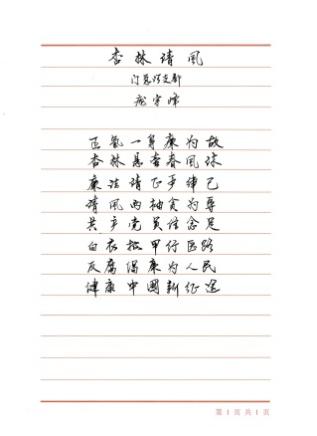 杏林清风
门急诊支部
医者一身廉为故
杏林悬壶春风沐
廉洁清正严律己
清风两袖贪为辱
共产党员信念足
白衣披甲行医路
反腐倡廉为人民
健康中国新征途
第 1 页 共 1 页